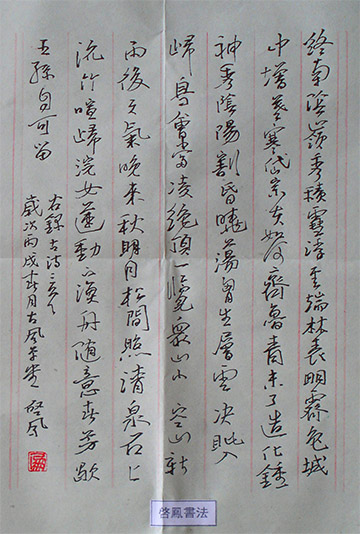 終南陰嶺秀積雪浮雲端林表明霽色城
中增暮寒岱宗夫如何齊魯青未了造化鍾
神秀陰陽割昏曉蕩胸生層雲決眥入
歸鳥會當凌絕頂一覽眾山小空山新
雨後天氣晚來秋明月松間照清泉石上
流竹喧歸浣女蓮動下漁舟隨意春芳歇
王孫自可留
右錄古詩三首
歲次丙戌
啓鳳書法